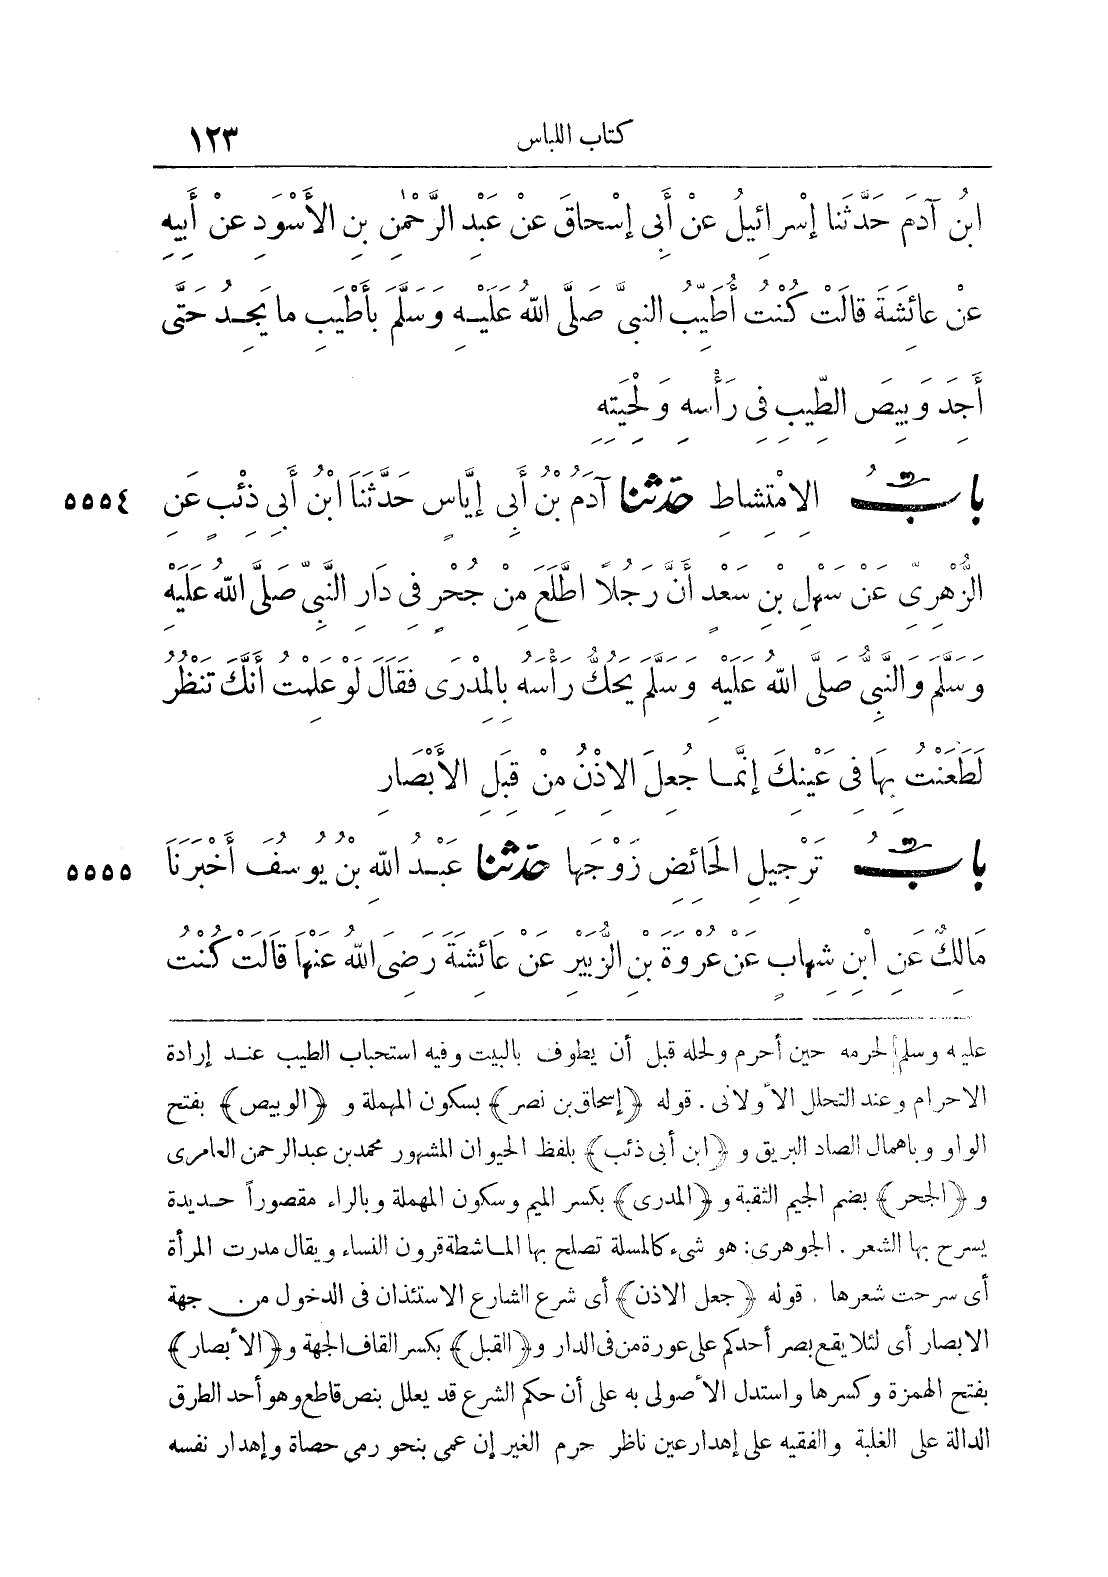 كتاب اللباس ١٢٣
ابنُ آدَمَ حَدَّثَنا إِسْرائيلُ عنْ أَبِى إِسْحاقَ عنْ عَبْدِ الرَّحْمٰنِ بنِ الأَسْوَدِ عنْ أَبِيهِ
عنْ عائِشَةَ قالَتْ كُنْتُ أُطَيِّبُ النبىَّ صَلَّى اللهُ عَلَيْهِ وَسَلَّمَ بِأَطْيَبِ ما يَجِدُ حَتَّى
أَجِدَ وَبِيصَ الطِّيبِ فِى رَأْسِهِ وَلِحْيَتِهِ
بابُ الِامْتِشاطِ حَدَّثَنا آدَمُ بْنُ أَبِى إِيَاسٍ حَدَّثَنَا ابْنُ أَبِى ذِئْبٍ عَنِ ٥٥٥٤
الزُّهْرِىِّ عَنْ سَهْلِ بْنِ سَعْدٍ أَنَّ رَجُلًا اطَّلَعَ مِنْ جُحْرٍ فِى دَارِ النَّبِىِّ صَلَّى اللهُ عَلَيْهِ
وَسَلَّمَ وَالنَّبِىُّ صَلَّى اللهُ عَلَيْهِ وَسَلَّمَ يَحُكُّ رَأْسَهُ بِالْمِدْرَى فَقَالَ لَوْ عَلِمْتُ أَنَّكَ تَنْظُرُ
لَطَعَنْتُ بِهَا فِى عَيْنِكَ إِنَّمَا جُعِلَ الإِذْنُ مِنْ قِبَلِ الأَبْصَارِ
بابُ تَرْجِيلِ الحَائِضِ زَوْجَها حَدَّثَنا عَبْدُ اللهِ بْنُ يُوسُفَ أَخْبَرَنَا ٥٥٥٥
مَالِكٌ عَنِ ابْنِ شِهابٍ عَنْ عُرْوَةَ بْنِ الزُّبَيْرِ عَنْ عَائِشَةَ رَضِىَ اللهُ عَنْهَا قَالَتْ كُنْتُ
عليه وسلم لحرمه حين أحرم ولحله قبل أن يطوف بالبيت وفيه استحباب الطيب عند إرادة
الاحرام وعند التحلل الأولانى . قوله ﴿إسحاق بن نصر﴾ بسكون المهملة و ﴿الوبيص﴾ بفتح
الواو وباهمال الصاد البريق و ﴿ابن أبى ذئب﴾ بلفظ الحيوان المشهور محمد بن عبد الرحمن العامرى
و ﴿الجحر﴾ بضم الجيم الثقبة و ﴿المدرى﴾ بكسر الميم وسكون المهملة وبالراء مقصوراً حديدة
يسرح بها الشعر . الجوهرى: هو شىء كالمسلة تصلح بها الماشطة قرون النساء ويقال مدرت المرأة
أى سرحت شعرها . قوله ﴿جعل الاذن﴾ أى شرع الشارع الاستئذان فى الدخول من جهة
الابصار أى لئلا يقع بصر أحدكم على عورة من فى الدار و ﴿القبل﴾ بكسر القاف الجهة و﴿الأبصار﴾
بفتح الهمزة وكسرها واستدل الأصولى به على أن حكم الشرع قد يعلل بنص قاطع وهو أحد الطرق
الدالة على الغلبة والفقيه على إهدار عين ناظر حرم الغير إن عمى بنحو رمى حصاة وإهدار نفسه